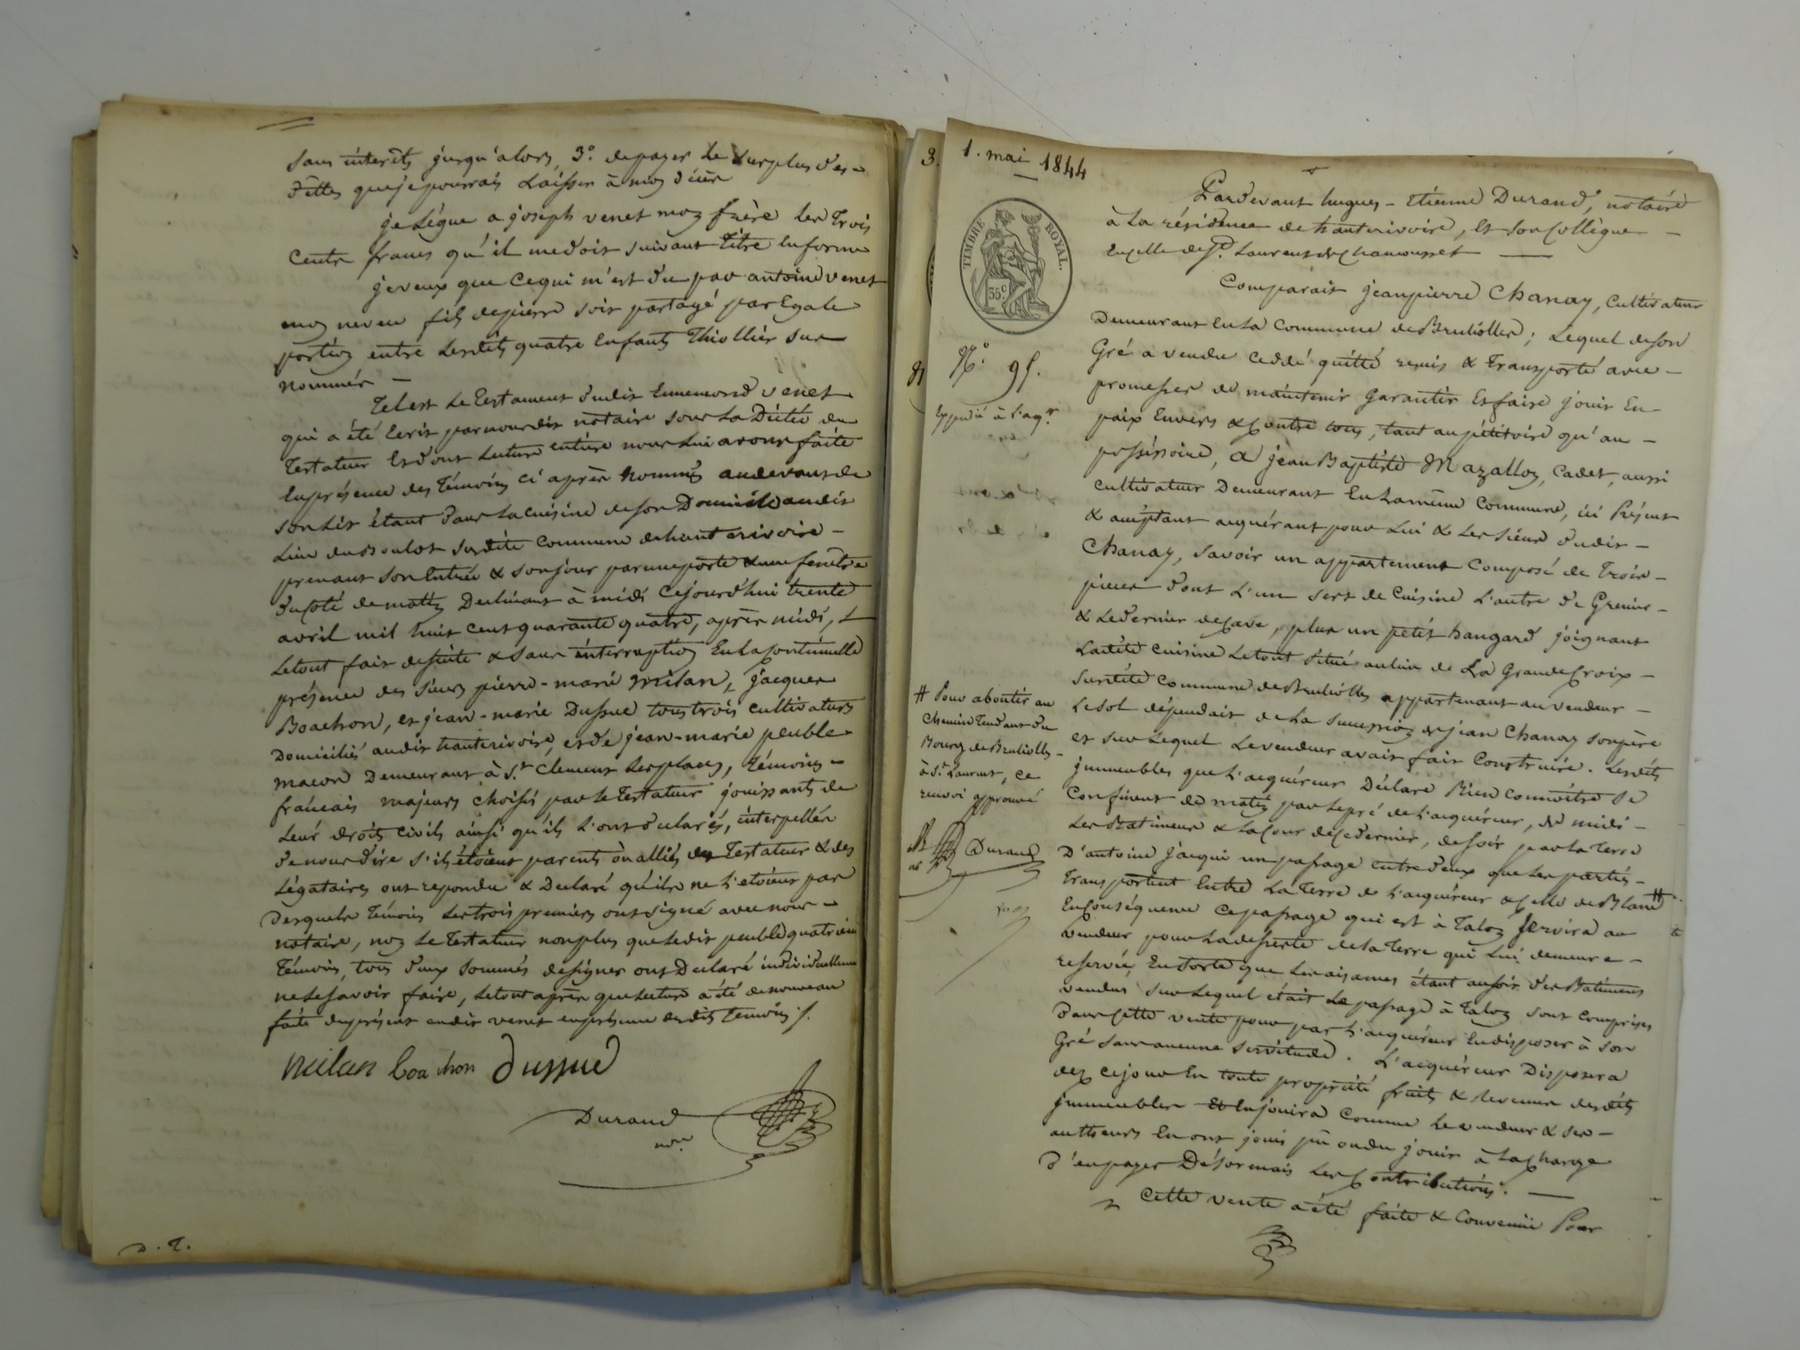 sans interêts jusqu'alors, 3.° de payer le surplus des
dettes que je pourrais laisser à mon décès
je lègue a joseph venet mon frère les trois
cents francs qu'il me doit suivant titre en forme
je veux que ce qui m'est du par antoine venet
mon neveu fils de pierre soit partagé par Egale
portion entre lesdits quatre Enfants Thiollier sus
nommés —
Tel est le testament dudit Ennemond venet
qui a été Ecrit par nous dit notaire sous la Dictée du
testateur Et dont lecture entière nous lui avons faite
En présence des témoins ci après nommés au devant de
son lit étant dans la cuisine de son Domicile audit
Lieu du Boulot susdite commune de haute rivoire —
prenant son Entrée & son jour par une porte & une fenêtre
du coté de matin Declinant à midi Cejourd'hui trente
avril mil huit cent quarante quatre, après midi,
Le tout fait de suite & sans interruption En la continuelle
présence des sieurs pierre-marie milan, jacques
Boachon, et jean-marie Dussuc tous trois cultivateurs
Domiciliés audit hauterivoire, et de jean-marie peuble
macon Demeurant à S.t Clement les places, témoins —
francais majeurs choisis par le testateur jouissants de
leur droits civils ainsi qu'ils l'ont déclarés, interpellés
de nous dire s'ils étoient parents ou alliés du Testateur & des
Légataires ont repondu & Declaré qu'ils ne l'etoient pas
Desquels témoins les trois premiers ont signé avec nous —
notaire, non le testateur non plus que ledit peuble quatrième
témoin, tous deux sommés de signer ont Declaré individuellement
ne le savoir faire, le tout après que lecture a été de nouveau
faite du présent audit venet en présence desdits témoins ./.
milan boachon dussuc
Durand
no.re
D. T.
3.
1. mai 1844
TIMBRE ROYAL.
35 c.
N.° 95.
Expédié à l'aq.r
Pardevant hugues-Etienne Durand, notaire
à La résidence de hauterivoire, Et son Collègue —
En celle de S.t Laurent de Chamousset —
Comparait jean pierre Chanay, Cultivateur
Demeurant En la Commune de Brullioles ; Lequel de son
Gré a vendu cédé quitté remis & transporté avec —
promesses de maintenir garantir Et faire jouir En
paix Envers & Contre tous, tant au pétitoire qu'au —
possessoire, a jean Baptiste Mazallon, Cadet, aussi
cultivateur Demeurant En la même Commune, ici présent
& acceptant acquérant pour Lui & les siens dudit —
Chanay, savoir un appartement Composé de trois —
pieces dont l'un sert de cuisine l'autre de Grenier —
& le dernier de cave, plus un petit hangard joignant
Ladite cuisine le tout situé au lieu de La Grande Croix —
susdite Commune de Brullioles appartenant au vendeur —
Le sol dépendait de la succession de jean Chanay son père
et sur lequel Le vendeur avait fait Construire. Lesdits
jmmeubles que l'acquéreur Déclare Bien connoitre se
Confinent de matin par le pré de l'acquéreur, de midi —
Les Batiments & la Cour de ce dernier, de soir par la terre
D'antoine jacqui un passage entre deux que les parties —
transportent Entre La terre de l'acquéreur & celle de Blanc #
En conséquence ce passage qui est à talon servira au
vendeur pour la desserte de la terre qui lui demeure —
reservée, En sorte que les aisances étant au soir des Batiments
vendus sur lequel était le passage à talon sont comprises
Dans cette vente pour par l'acquéreur En disposer à son
Gré sans aucune servitude. L'acquéreur Disposera
dez ce jour En toute propriété fruits & revenus desdits
jmmeubles Et En jouira Comme le vendeur & ses —
autheurs En ont joui pû ou du jouir à la charge
d'en payer Désormais les Contributions. —
Cette vente a été faite & Convenüe Pour
# Pour aboutir au
Chemin tendant du
Bourg de Brullioles
à S.t Laurent, ce
renvoi approuvé
Durand